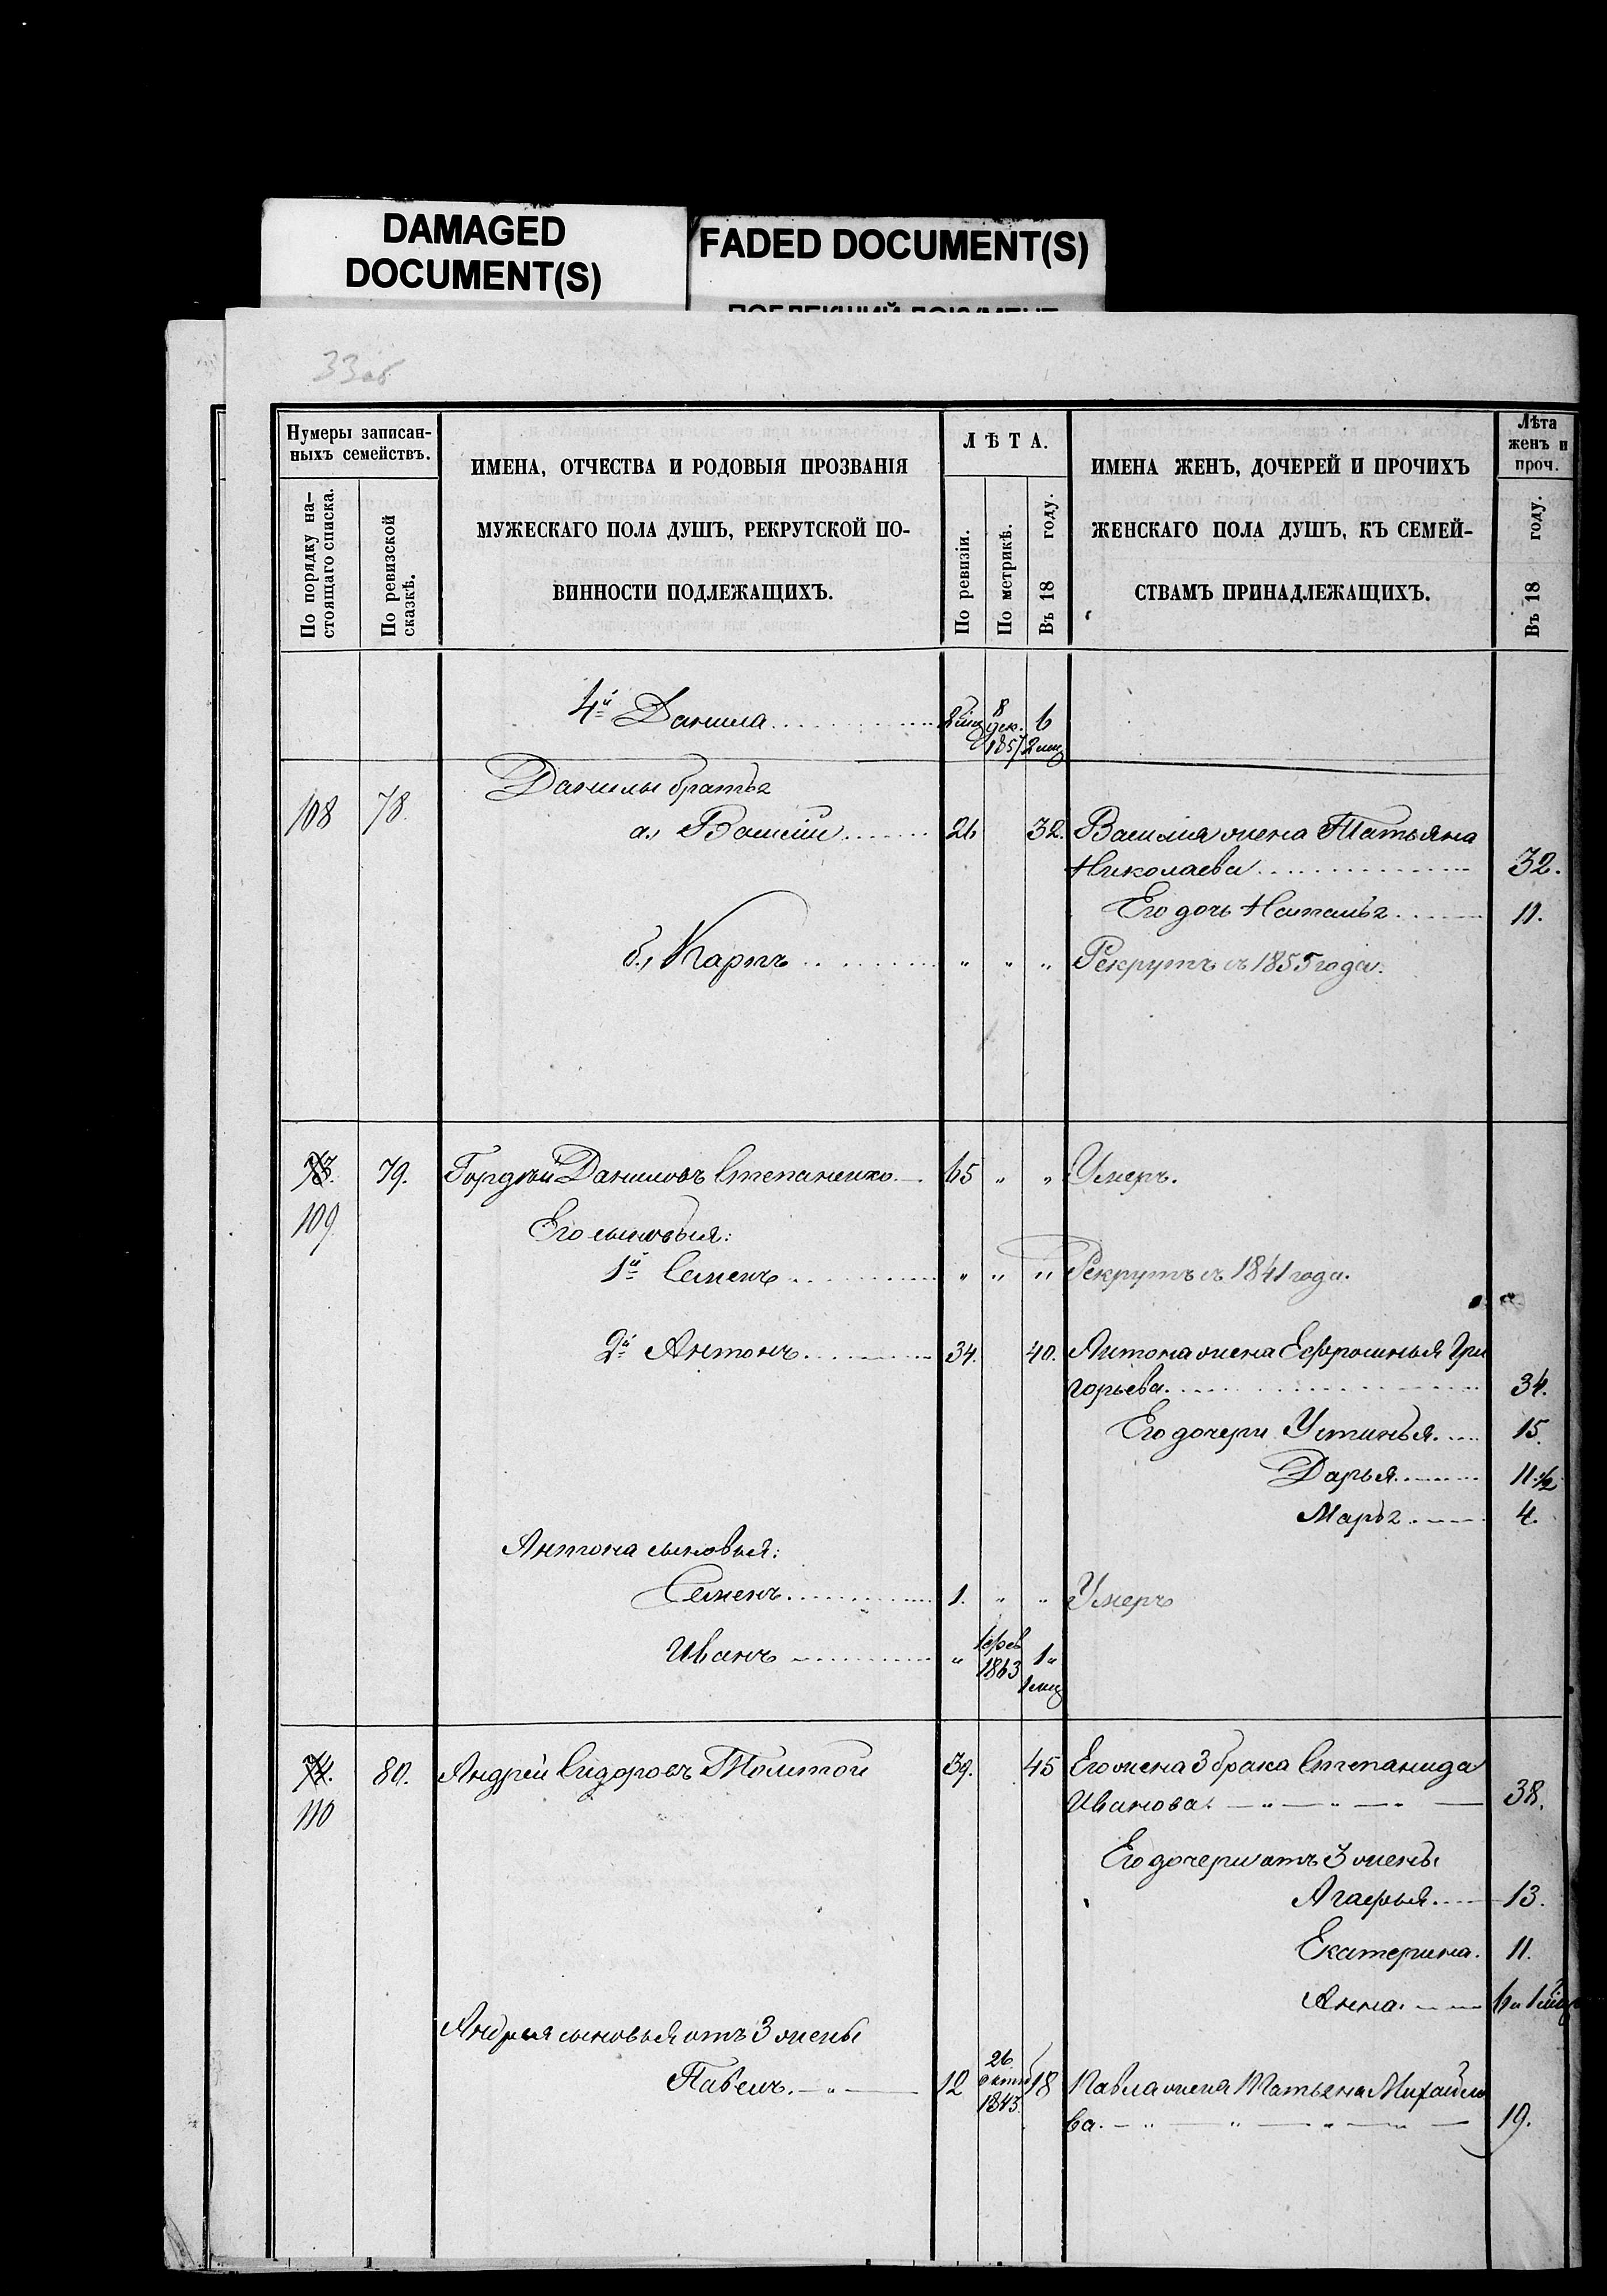 DAMAGED
DOCUMENT(S)
FADED DOCUMENT(S)
33об
Нумеры записан-
ныхъ семействъ.
По порядку на-
стоящаго списка.
По ревизской
сказкѣ.
ИМЕНА, ОТЧЕСТВА И РОДОВЫЯ ПРОЗВАНІЯ
МУЖЕСКАГО ПОЛА ДУШЪ, РЕКРУТСКОЙ ПО-
ВИННОСТИ ПОДЛЕЖАЩИХЪ.
ЛѢТА.
По ревизіи.
По метрикѣ.
Въ 18 году.
ИМЕНА ЖЕНЪ, ДОЧЕРЕЙ И ПРОЧИХЪ
ЖЕНСКАГО ПОЛА ДУШЪ, КЪ СЕМЕЙ-
СТВАМЪ ПРИНАДЛЕЖАЩИХЪ.
Лѣта
женъ и
проч.
Въ 18 году.
4й Данила 8 дек. 1857 6 2 мц
108 78. Данилы братья
а, Василій 26 32. Василія жена Татьяна
Николаева 32.
Его дочь Наталья 11.
б, Карпъ " " " Рекрутъ съ 1855 года.
73. 79. Гордѣй Даниловъ Степаненко 65 " " Умеръ.
109 Его сыновья:
1й Семенъ " " " Рекрутъ съ 1841 года.
2й Антонъ 34. 40. Антона жена Ефросинья Гри
горьева 34.
Его дочери Устинья 15.
Дарья 11 1/2
Марья 4.
Антона сыновья:
Семенъ 1. " " Умеръ
Иванъ " 1 фев 1863 1 "
1 мц
74. 80. Андрей Сидоровъ Толстой 39. 45 Его жена 3 брака Степанида
110 Иванова 38.
Его дочери отъ 3 жены
Агафья 13.
Екатерина. 11.
Анна. 6 и 1 мц
Андрея сыновья отъ 3 жены
Павелъ. 12 26 октяб 1845. 18 Павла жена Татьяна Михайло
ва. 19.